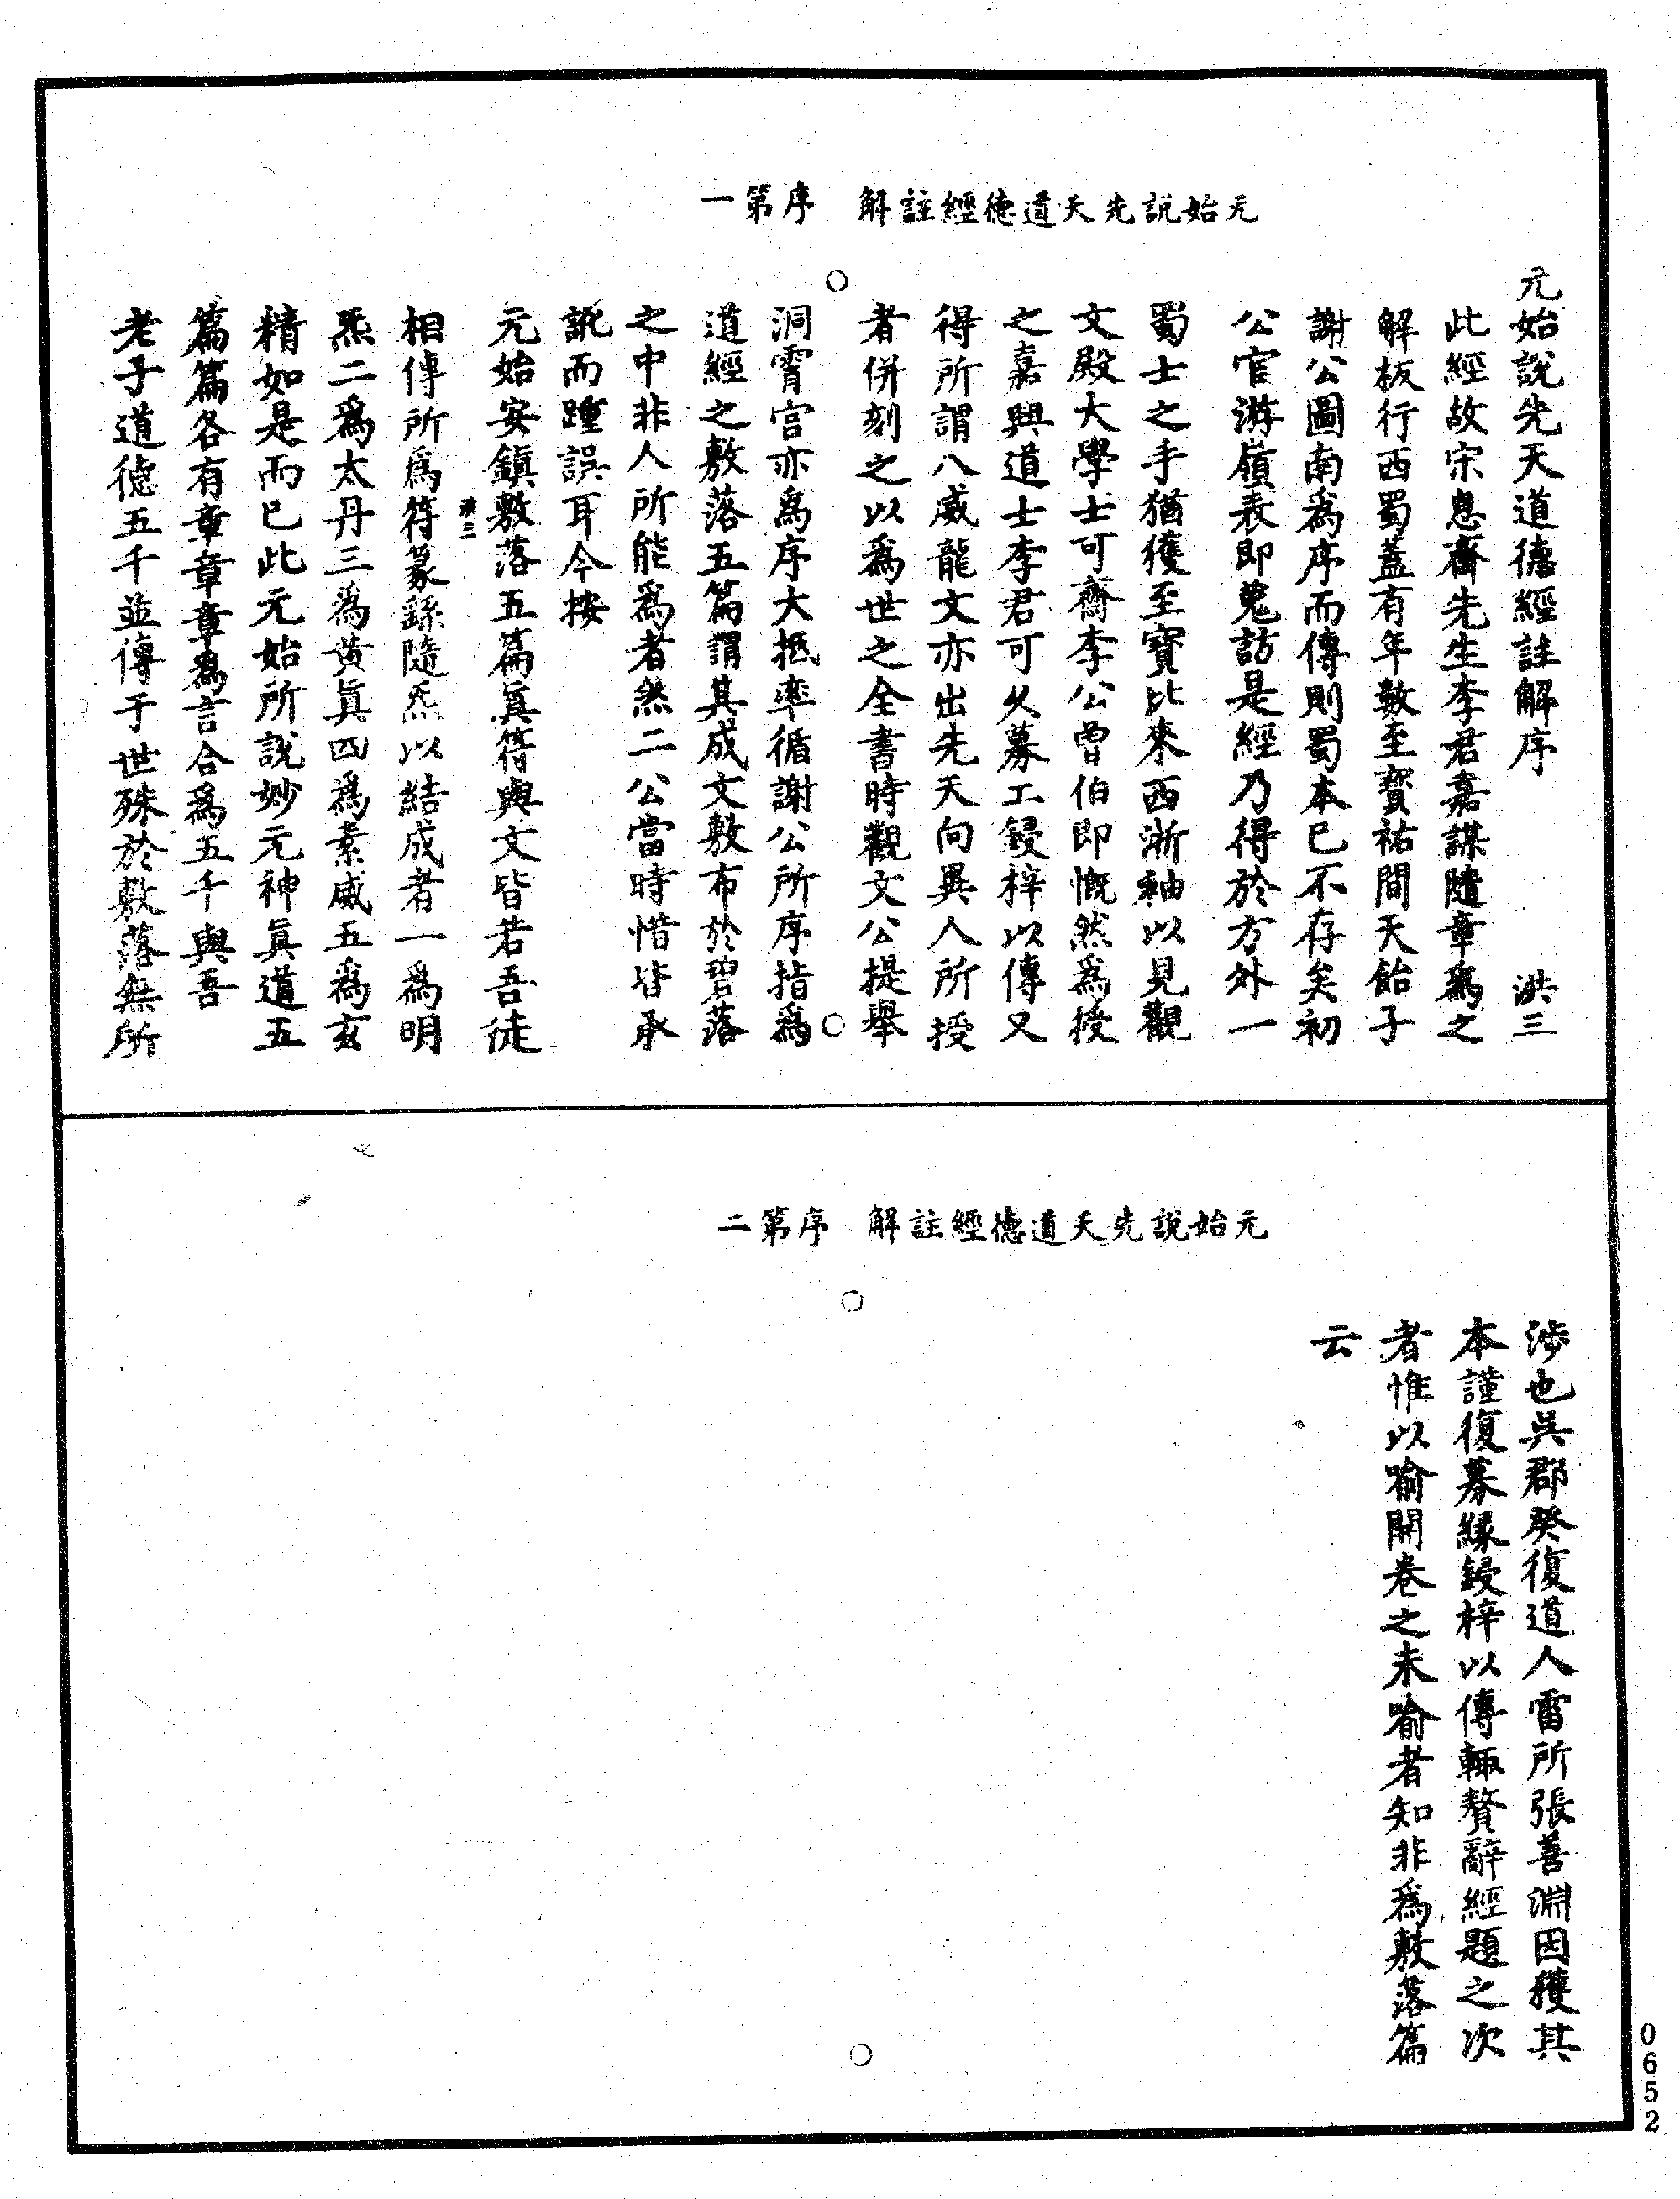 元始說先天道德經註解　序第一
元始說先天道德經註解序　洪三
此經故宋息齋先生李君嘉謀隨章爲之
解板行西蜀蓋有年數至寳祐間天飴子
謝公圖南爲序而傳則蜀本已不存矣初
公官游嶺表即蒐訪是經乃得於方外一
蜀士之手猶獲至寳比來西浙袖以見觀
文殿大學士可齋李公曾伯即慨然爲授
之嘉興道士李君可久募工鋟梓以傳又
得所謂八威龍文亦出先天向異人所授
者併刻之以爲世之全書時觀文公提舉
洞霄宮亦爲序大抵率循謝公所序指爲
道經之敷落五篇謂其成文敷布於碧落
之中非人所能爲者然二公當時惜皆承
訛而踵誤耳今按
元始安鎮敷落五篇眞符與文皆若吾徒
洪三
相傳所爲符篆繇隨炁以結成者一爲明
炁二爲太丹三爲黄眞四爲素威五爲玄
精如是而已此元始所說妙元神眞道五
篇篇各有章章章爲言合爲五千與吾
老子道德五千並傳于世殊於敷落無所
元始說先天道德經註解　序第二
涉也吳郡癸復道人雷所張善淵因獲其
本謹復募縁鋟梓以傳輙贅辭經題之次
者惟以喻開卷之未喻者知非爲敷落篇
云
0652